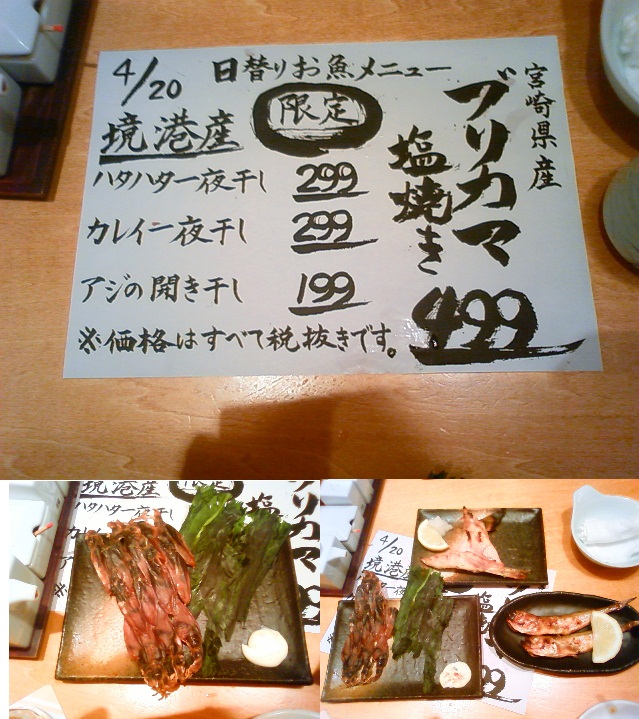 4/20
日替りお魚メニュー
限定
宮崎県産
ブリカマ
塩焼き
499
境港産
ハタハタ一夜干し 299
カレイ一夜干し 299
アジの開き干し 199
※価格はすべて税抜きです。
境港産
限定
ハタハタ一夜干し
カレ
ア
※
ブリカマ
塩
4/20
境港産
塩焼き
499